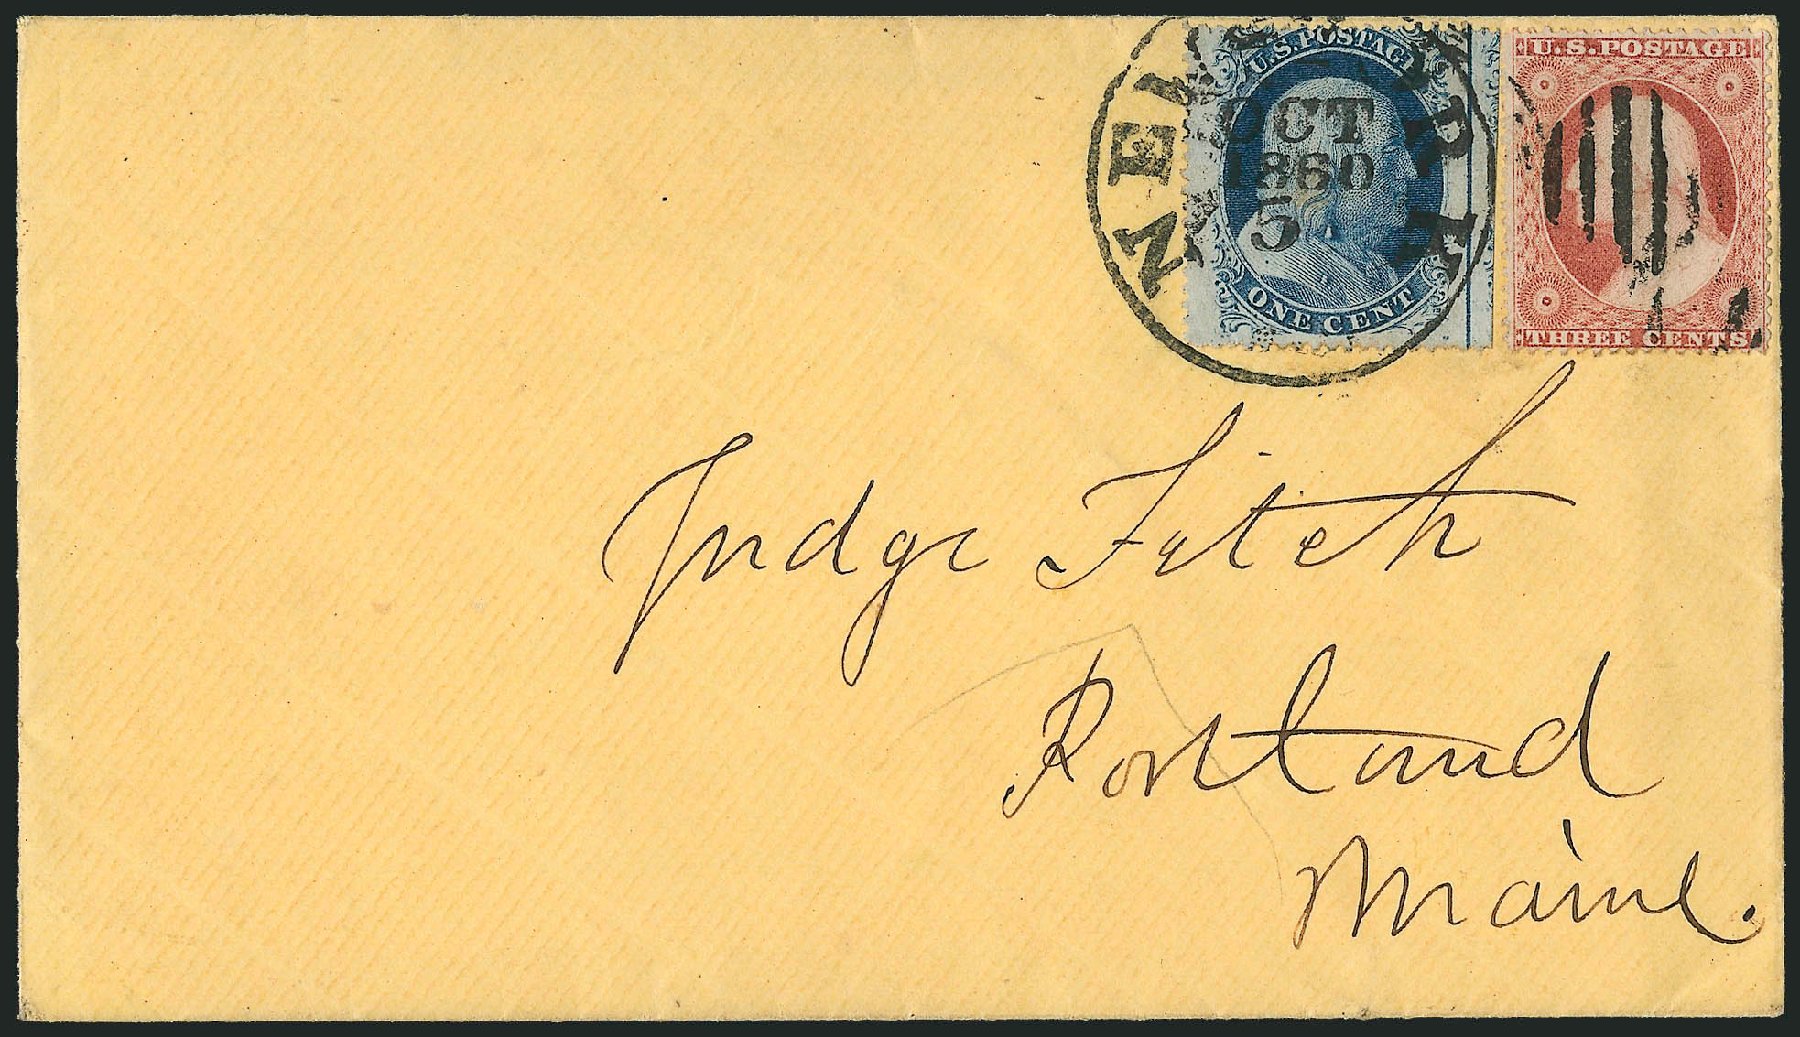 U.S. POSTAGE
ONE CENT
U.S. POSTAGE
THREE CENTS
NEW-YORK
OCT
1860
5
Judge Fitch
Portland
Maine.